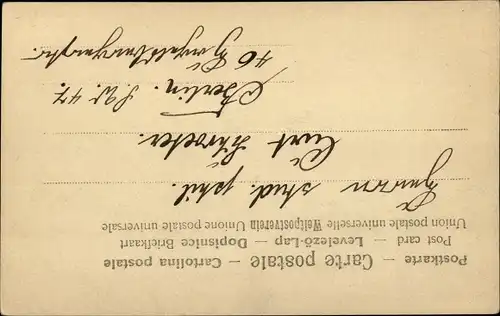 Postkarte — Carte postale — Cartolina postale
Post card — Levelező-Lap — Dopisnice Briefkaart
Union postale universelle Weltpostverein Unione postale universale
Herrn stud. phil.
Curt Schroeter.
Berlin. S.W. 47.
46